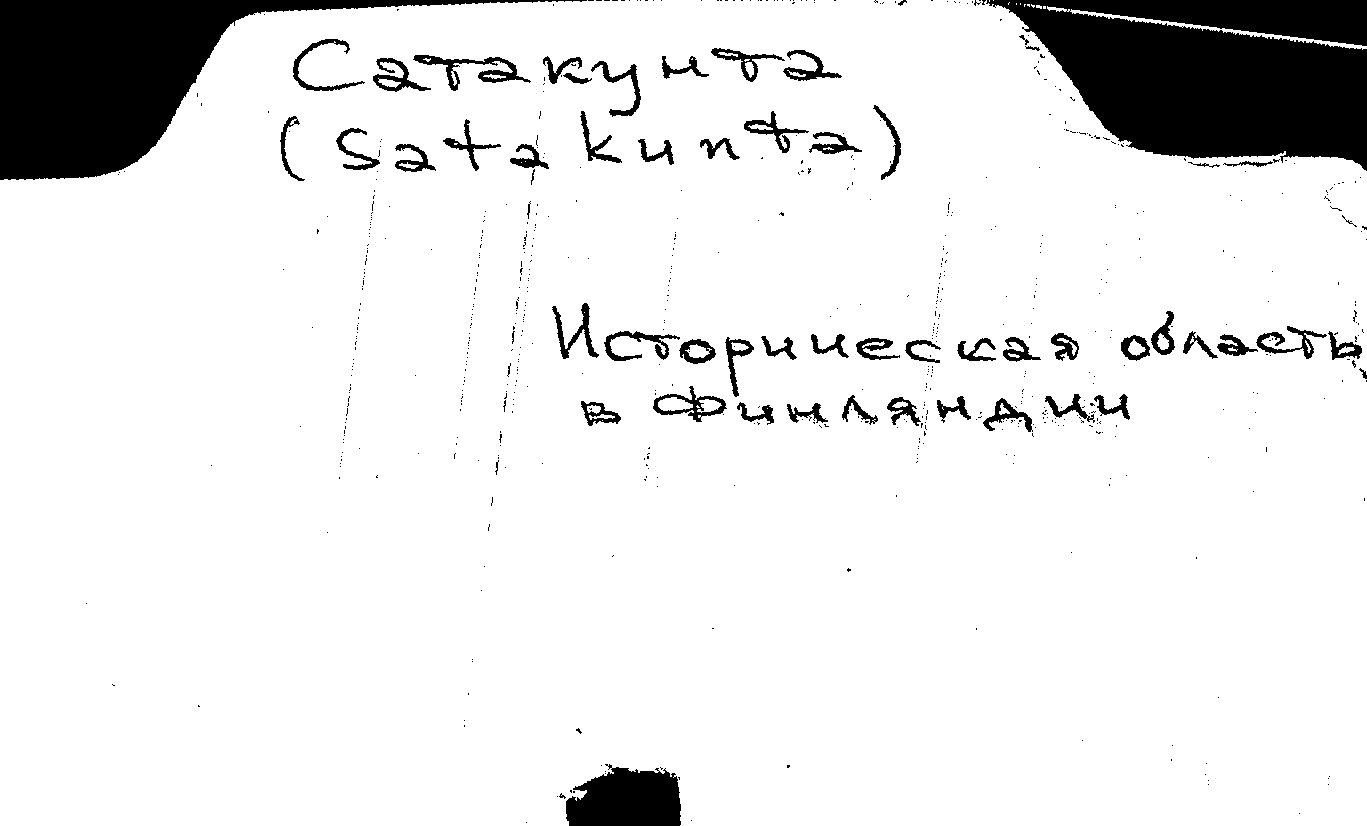 Сатакунта
(Satakunta)
Историческая область
в Финляндии